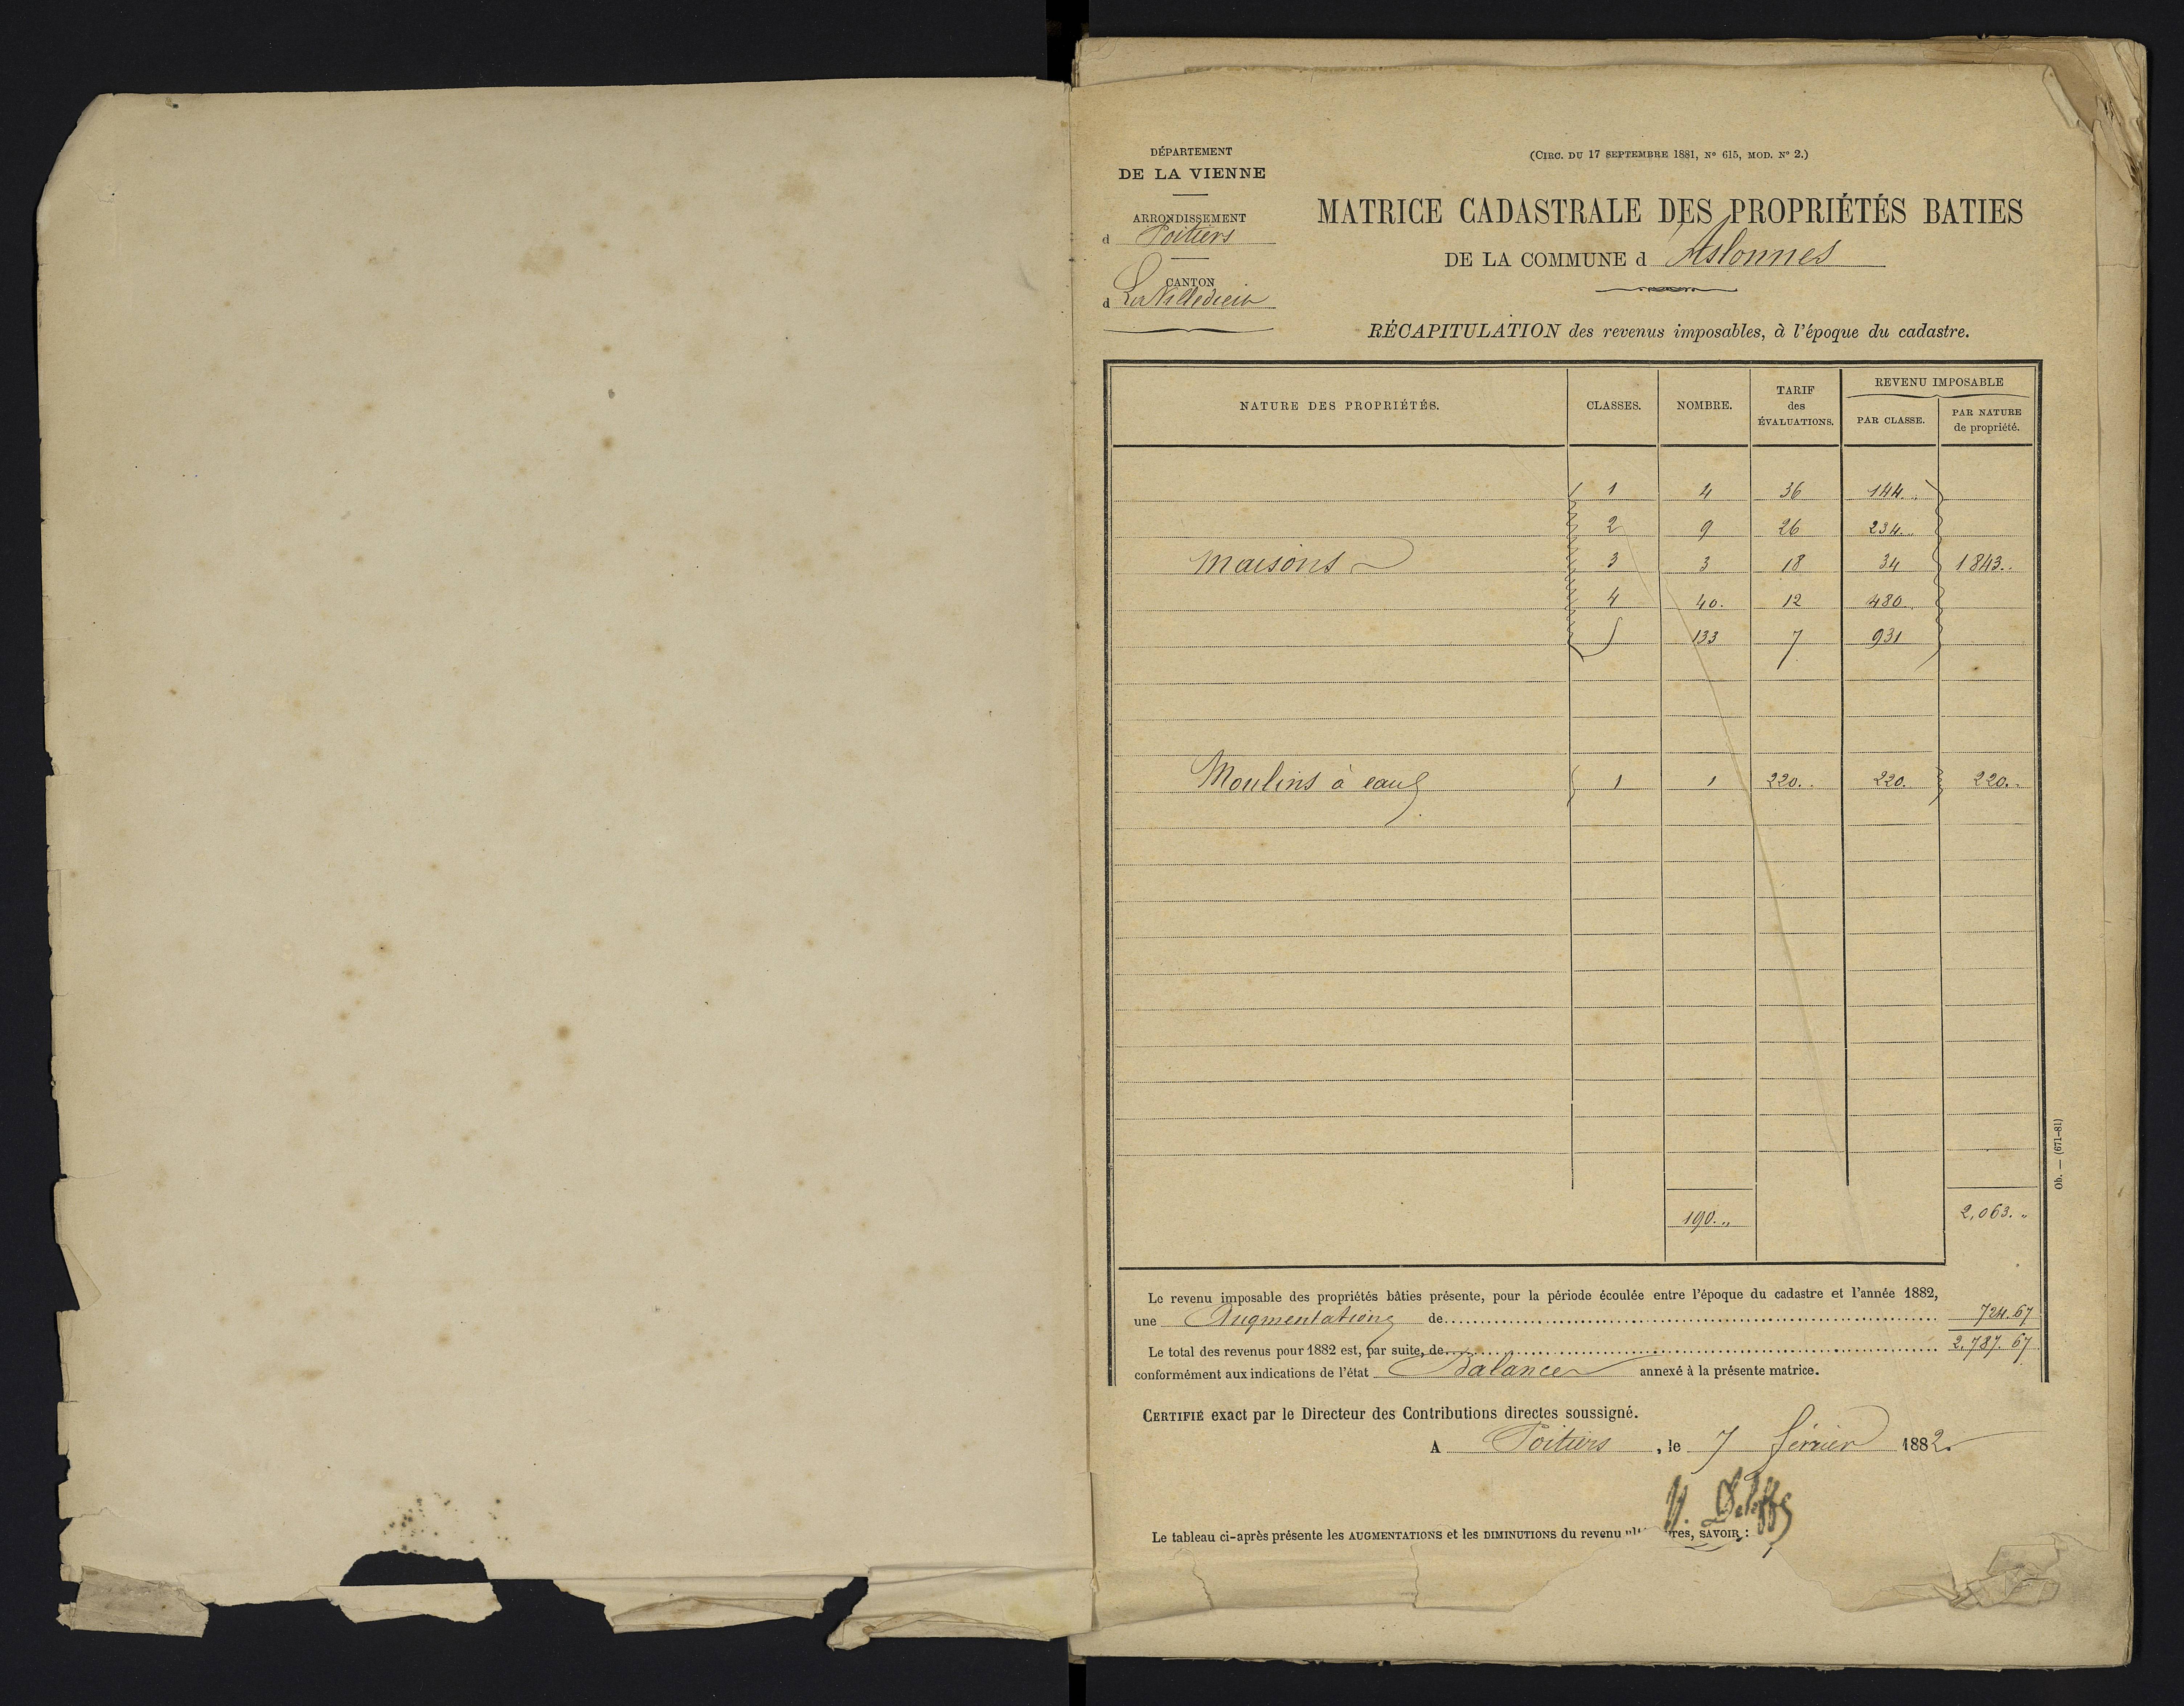 DÉPARTEMENT
DE LA VIENNE
ARRONDISSEMENT
d Poitiers
CANTON
d La Villedieu
(CIRC. DU 17 SEPTEMBRE 1881, Nº 615, MOD. Nº 2.)
MATRICE CADASTRALE DES PROPRIÉTÉS BATIES
DE LA COMMUNE d Aslonnes
RÉCAPITULATION des revenus imposables, à l'époque du cadastre.
NATURE DES PROPRIÉTÉS. CLASSES. NOMBRE. TARIF des ÉVALUATIONS. REVENU IMPOSABLE PAR CLASSE. PAR NATURE de propriété.
1 4 36 144 "
2 9 26 234 "
Maisons 3 3 18 34 1843 "
4 40. 12 480 "
5 133 7 931
Moulins à eau 1 1 220 " 220. 220 "
190 " 2,063. "
Le revenu imposable des propriétés bâties présente, pour la période écoulée entre l'époque du cadastre et l'année 1882,
une Augmentation de 724.67
Le total des revenus pour 1882 est, par suite, de 2,787.67
conformément aux indications de l'état Balance annexé à la présente matrice.
CERTIFIÉ exact par le Directeur des Contributions directes soussigné.
A Poitiers, le 7 février 1882.
Le tableau ci-après présente les AUGMENTATIONS et les DIMINUTIONS du revenu SAVOIR :
Ob. — (671-81)